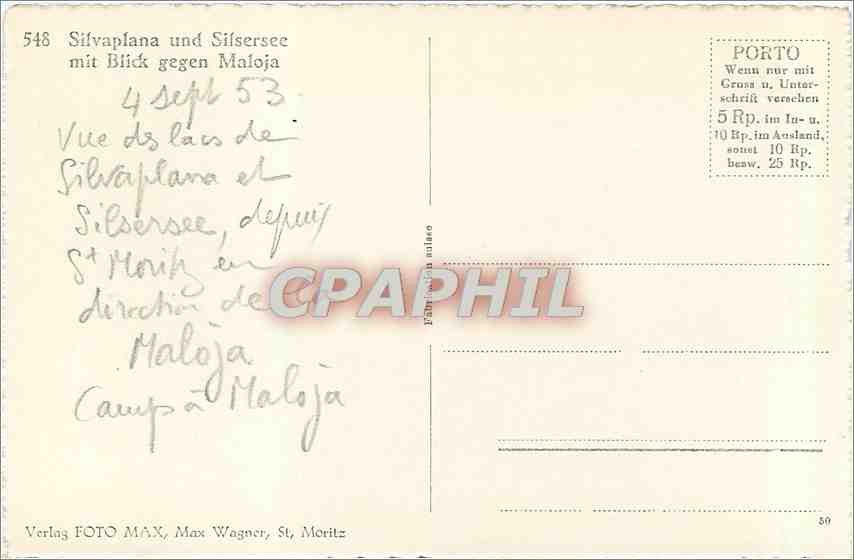 548 Silvaplana und Silsersee
mit Blick gegen Maloja
4 sept 53
Vue des lacs de
Silvaplana et
Silsersee, depuis
St Moritz en
direction de la
Maloja
Camp à Maloja
Verlag FOTO MAX, Max Wagner, St. Moritz
Fabrication suisse
CPAPHIL
PORTO
Wenn nur mit
Gruss u. Unter-
schrift versehen
5 Rp. im In- u.
10 Rp. im Ausland,
sonst 10 Rp.
bezw. 25 Rp.
50